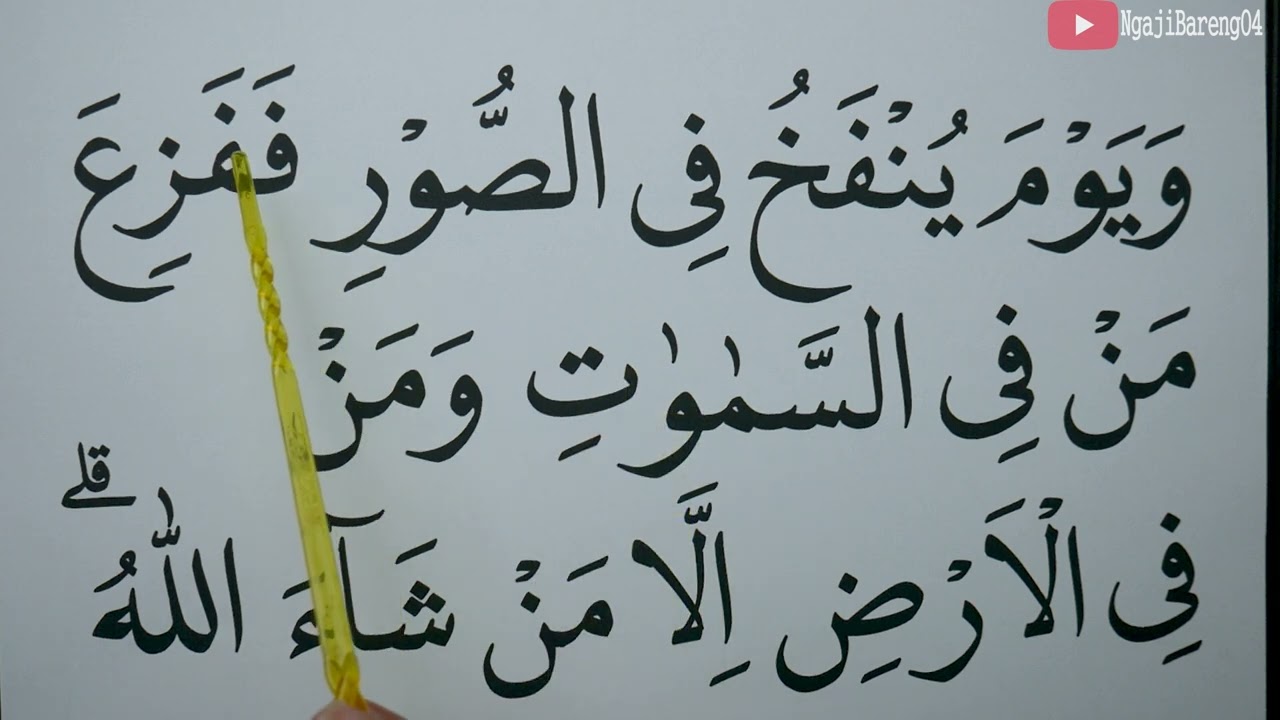 NgajiBareng04
وَيَوْمَ يُنْفَخُ فِى الصُّوْرِ فَفَزِعَ
مَنْ فِى السَّمٰوٰتِ وَمَنْ
فِى الْاَرْضِ اِلَّا مَنْ شَاۤءَ اللّٰهُ ۗ